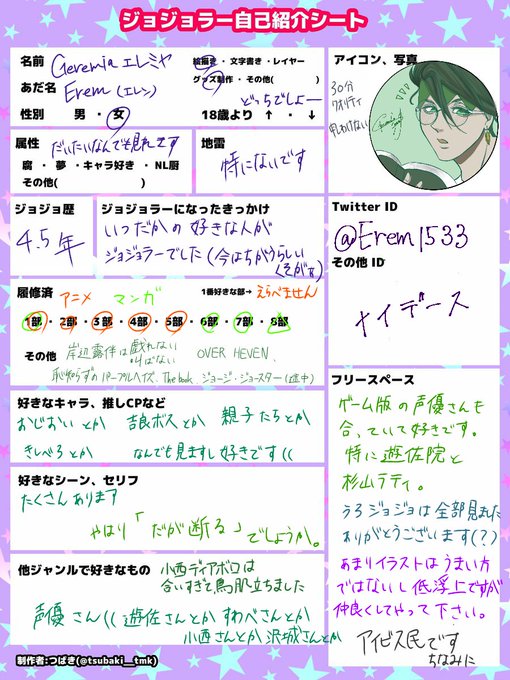 ジョジョラー自己紹介シート
名前 Geremia エレミヤ
あだ名 Erem (エレン)
性別 男・女
絵描き・文字書き・レイヤー
グッズ制作・その他( )
どっちでしょー
18歳より ↑・↓
アイコン、写真
30分
クオリティ
申しわけない
属性 だいたいなんでも見れます
腐・夢・キャラ好き・NL厨
その他( )
地雷
特にないです
ジョジョ歴
4.5年
ジョジョラーになったきっかけ
いつだかの好きな人が
ジョジョラーでした(今はちがうらしい
くそがぁ)
Twitter ID
@Erem1533
その他 ID
ナイデース
履修済 アニメ マンガ 1番好きな部→えらべません
1部・2部・3部・4部・5部・6部・7部・8部
その他 岸辺露伴は戯れない
叫ばない OVER HEVEN、
恥知らずのパープルヘイズ、The book、ジョージ・ジョースター(途中)
好きなキャラ、推しCPなど
おじおい とか 吉良ボスとか 親子たちとか
きしべろ とか なんでも見ますし好きです((
好きなシーン、セリフ
たくさんあります
やはり「だが断る」でしょうか。
他ジャンルで好きなもの 小西ディアボロは
合いすぎて鳥肌立ちました
声優さん(( 遊佐さんとか すわべさんとか
小西さんとか 沢城さんとか
フリースペース
ゲーム版の声優さんも
合っていて好きです。
特に遊佐院と
杉山ラティ。
うろジョジョは全部見ました
ありがとうございます(?)
あまりイラストはうまい方
ではないし低浮上ですが
仲良くしてやって下さい。
アイビス民です
ちなみに
制作者:つばき(@tsubaki__tmk)